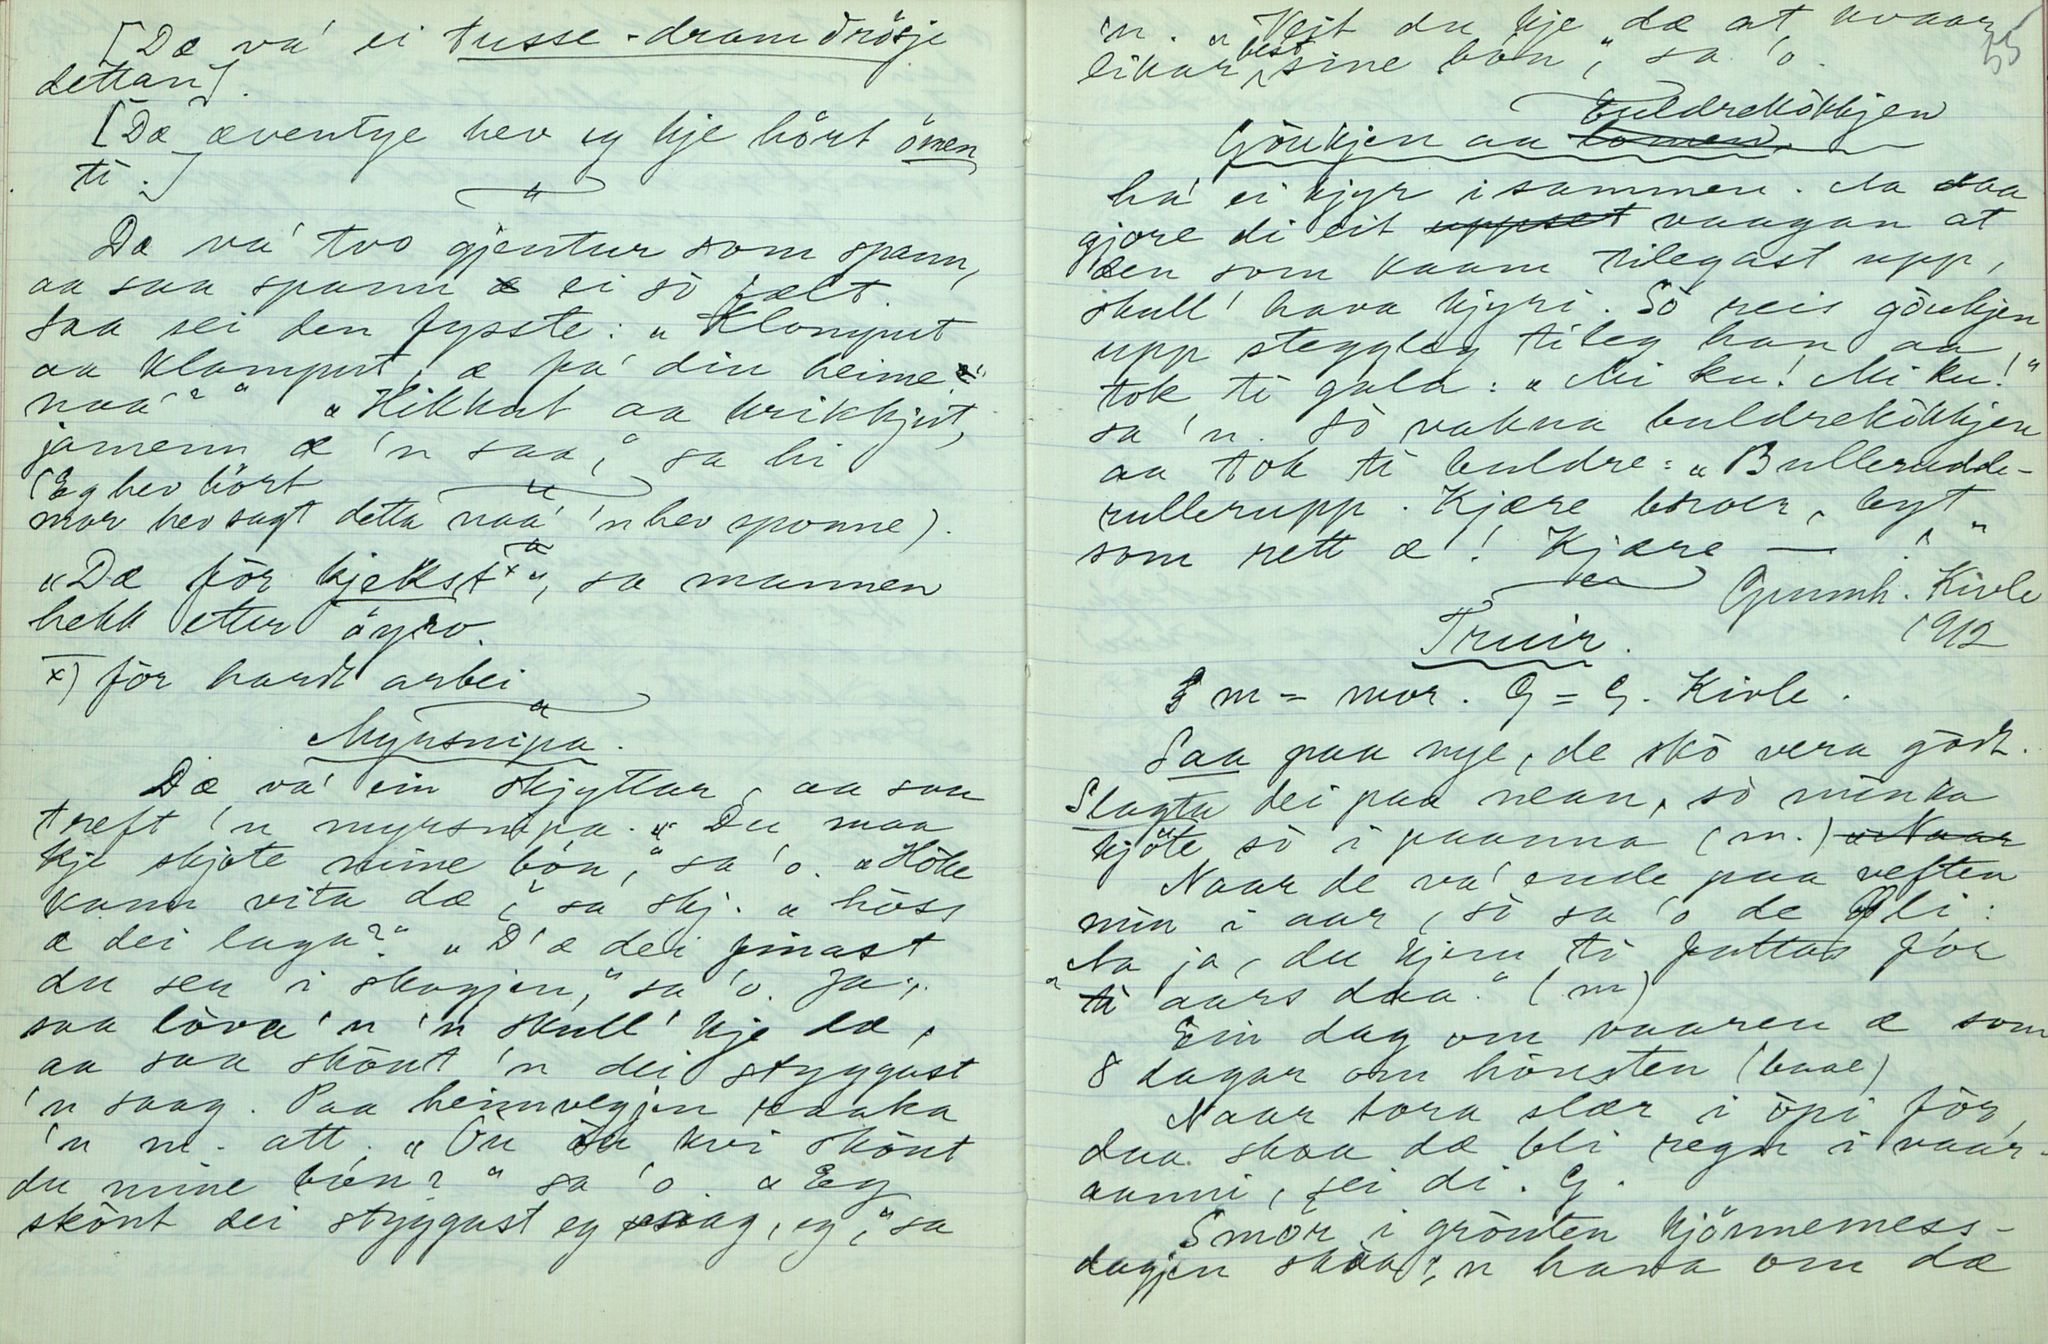 [Dæ va' ei tusse-dramdrösje
dettan].
[Dæ æventye hev eg kje hört önen
ti.]
Dæ va' tvo gjentur som spann,
aa saa spann ei so jælt.
Saa sei den fysste: "Klomput
aa klamput, æ fa' din heime
naa'?" "Hikkut aa krikkjut,
jamenn æ 'n saa," sa hi
(Eg hev hört
mor hev sagt detta naa' 'n hev sponne).
"Dæ för kjekst x", sa mannen
hekk etter öyro.
x) för hardt arbei
Myrsnipa.
Dæ va' ein skjyttar, aa saa
treft 'n myrsnipa. "Du maa
kje skjote mine bön," sa 'o. "Höke
kann vita dæ," sa skj. "höss
æ dei laga?" "D'æ dei finast
du ser i skogjen," sa 'o. Ja,
saa lova 'n 'n skull' kje dæ,
aa saa skönt 'n dei styggast
'n saag. Paa heimvegjen raaka
'n m. att. "Ou ou hvi skönt
du mine bön?" sa 'o. "Eg
skönt dei styggast eg saag, eg," sa
55
'n. "Veit du kje dæ at hvaar
likar best sine bön," sa 'o.
Göukjen aa lomen buldrekökkjen
ha' ei kjyr isammen. Aa saa
gjore di eit uppset vaagan at
den som kaam tilegast upp,
skull' hava kjyri. So reis göukjen
upp steggleg tileg han aa
tok ti gala: "Mi ku! Mi ku!"
sa 'n. So vakna buldrekökkjen
aa tok ti buldre: "Bulleradde-
rullerupp. Kjære broer, byt
som rett æ! Kjære — ."
Gunnh. Kivle
1912
Truir.
m = mor. G = G. Kivle.
Saa paa nye, de sko vera godt.
Slagta dei paa nean, so minka
kjöte so i paanna (m.) Naar
Naar de va' ende paa veften
min i aar, so sa 'o de Oli:
"Aa ja, du kjem ti fattas for
ti aars daa." (m)
Ein dag om vaaren æ som
8 dagar om hönsten (baae)
Naar tora slær i öpi för,
daa skaa dæ bli regn i vaar-
aanni, sei di. G.
Smör i grönten kjörmemess-
dagjen skaa 'n hava om dæ